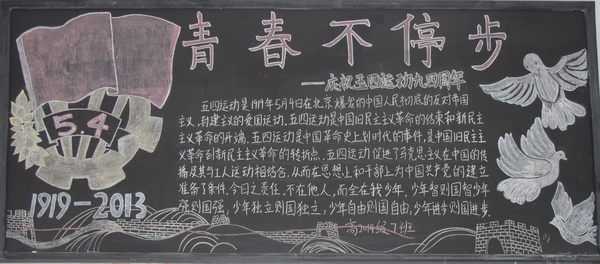 青春不停步
——庆祝五四运动九四周年
5.4
1919-2013
五四运动是1919年5月4日在北京爆发的中国人民彻底的反对帝国
主义,封建主义的爱国运动,五四运动是中国旧民主主义革命的结束和新民主
主义革命的开端.五四运动是中国革命史上划时代的事件,是中国旧民主主
义革命到新民主主义革命的转折点.五四运动促进了马克思主义在中国的传
播及其与工人运动相结合,从而在思想上和干部上为中国共产党的建立
准备了条件.今日之责任,不在他人,而全在我少年,少年智则国智少年
强则国强,少年独立则国独立,少年自由则国自由,少年进步则国进步.
高2014级7班